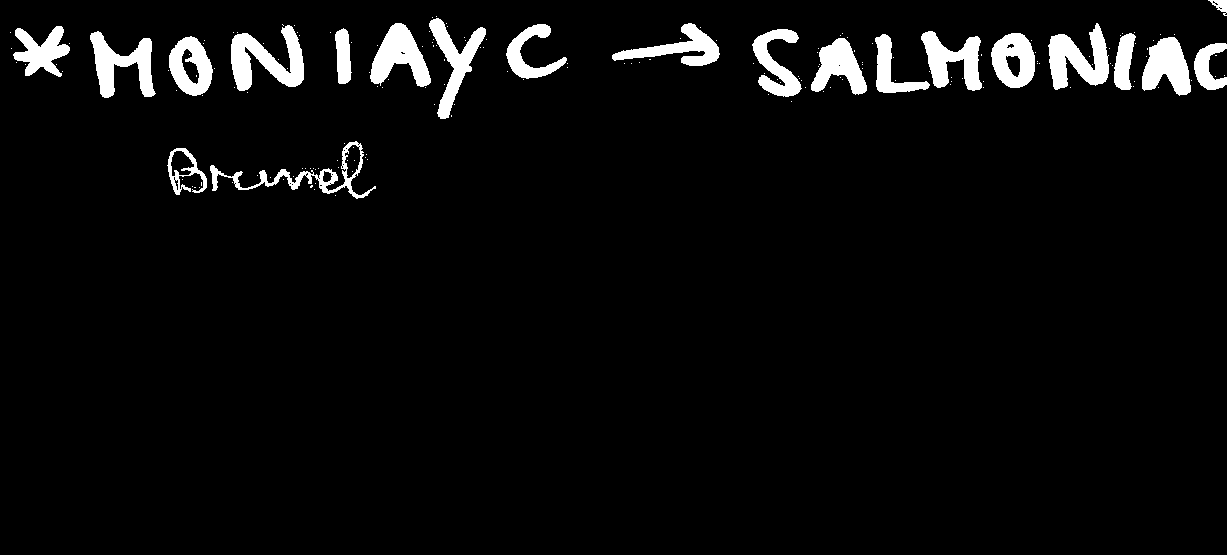 *MONIAYC → SALMONIAC
Brunel